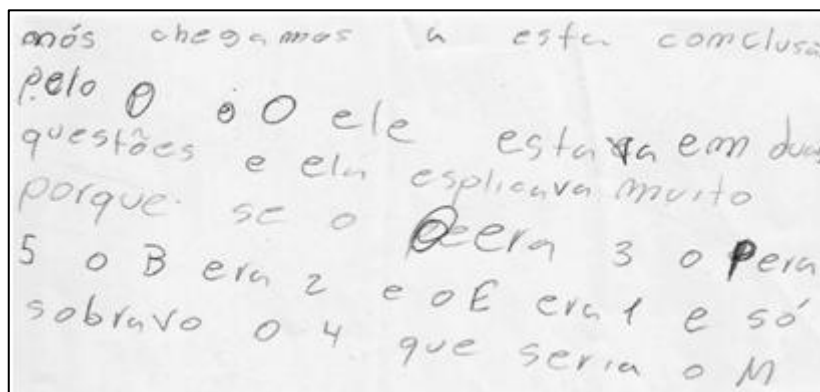 mós chegamos a esta comclusã
pelo O o O ele estava em duas
questões e ela esplicava muito
porque se o O era 3 o P era
5 o B era 2 e o E era 1 e só
sobravo o 4 que seria o M